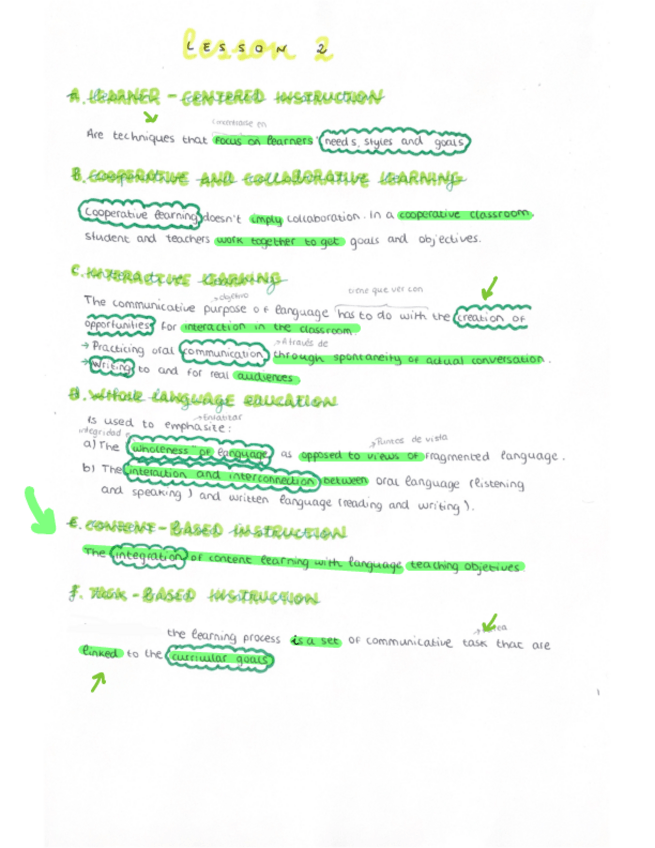 LESSON 2
A. LEARNER - CENTERED INSTRUCTION
concentrarse en
Are techniques that focus on learners' needs, styles and goals
B. COOPERATIVE AND COLLABORATIVE LEARNING
Cooperative learning doesn't imply collaboration. In a cooperative classroom,
student and teachers work together to get goals and objectives.
C. INTERACTIVE LEARNING
→ objetivo tiene que ver con
The communicative purpose of language has to do with the creation of
opportunities for interaction in the classroom
→ A través de
→ Practicing oral communication through spontaneity of actual conversation.
→ Writing to and for real audiences
d. WHOLE LANGUAGE EDUCATION
→ Enfatizar
is used to emphasite:
integridad → Puntos de vista
a) The wholeness of language as opposed to views of fragmented language.
b) The interaction and interconnection between oral language (listening
and speaking) and written language (reading and writing).
E. CONTENT - BASED INSTRUCTION
The integration of content learning with language teaching objetives
f. TASK - BASED INSTRUCTION
the learning process is a set of communicative task that are
linked to the curricular goals